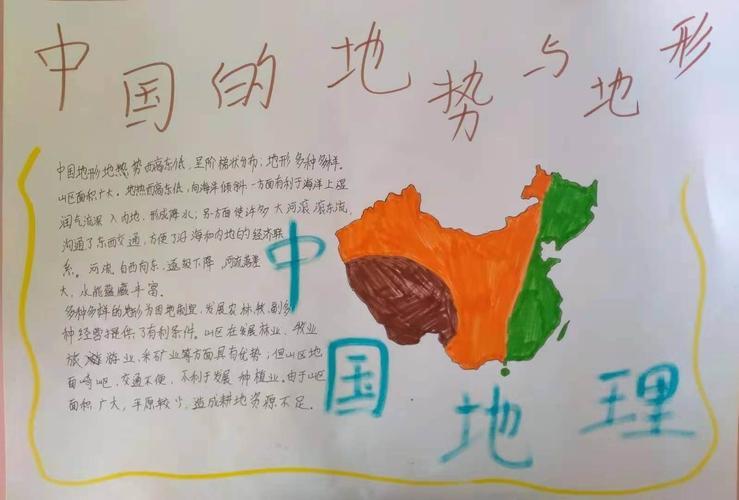 中国的地势与地形
中国地形地热势西高东低,呈阶梯状分布;地形多种多样。
山区面积广大。地热西高东低,向海洋倾斜一方面有利于海洋上湿
润气流深入内地,形成降水;另方面使许多大河滚滚东流,
沟通了东西交通,方便了沿海和内地的经济联
系。河流自西向东,逐级下降,河流落差
大,水能蕴藏丰富。
多种多样的地形为因地制宜,发展农林牧副多
种经营提供了有利条件。山区在发展林业、牧业
旅游业,采矿业等方面具有优势;但山区地
面崎岖,交通不便,不利于发展种植业。由于山区
面积广大,平原较少,造成耕地资源不足。
中国地理